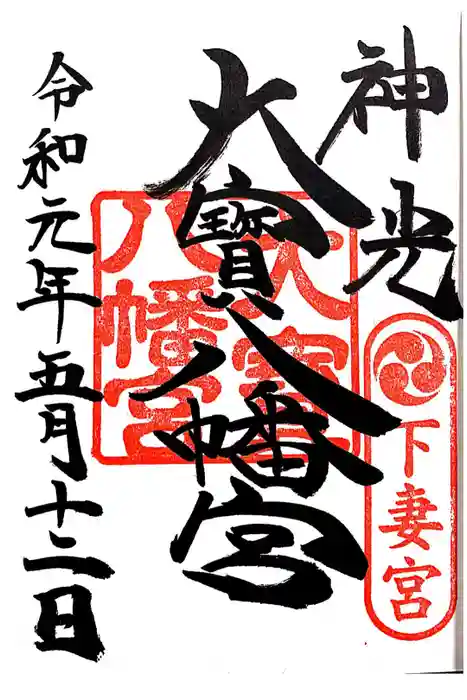 神光
下妻宮
大寶八幡宮
大寶八幡宮
令和元年五月十二日